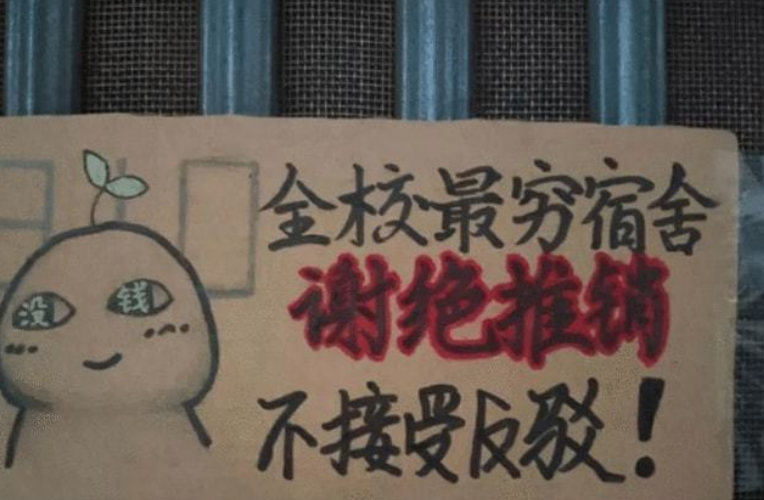 全校最穷宿舍
谢绝推销
不接受反驳！
没 钱